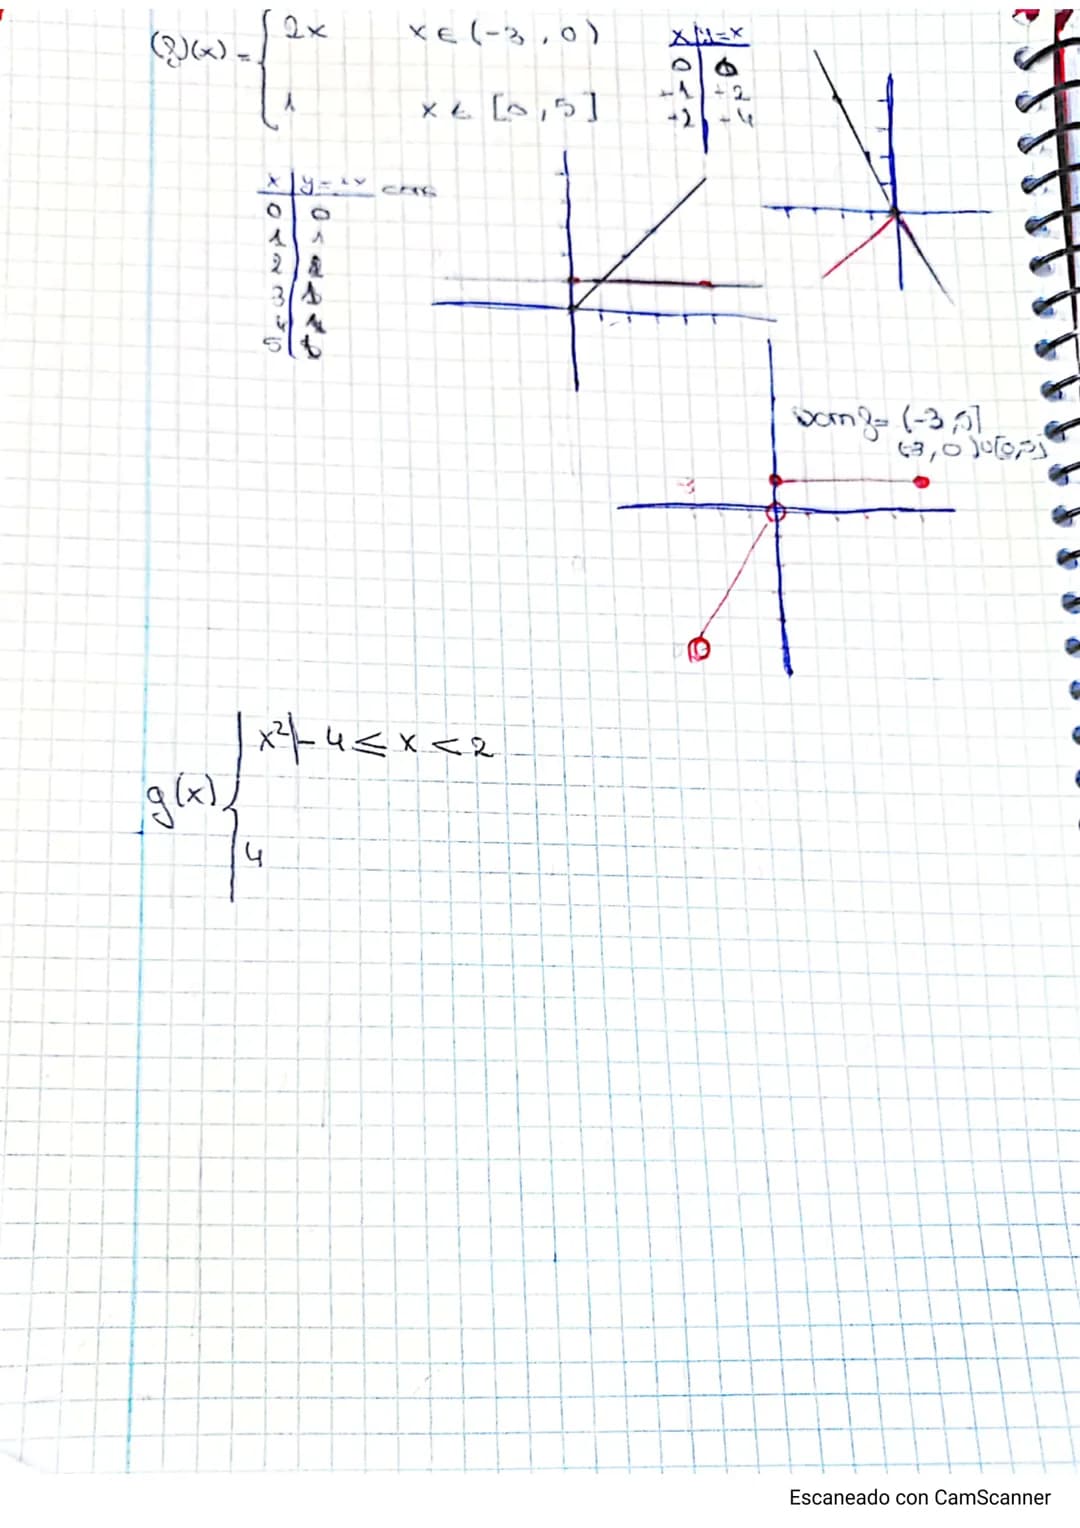 (f)(x) = { 2x x ∈ (-3, 0)
1 x ∈ [0, 5]
x | y=x
0 | 0
-1 | -2
-2 | -4
x | y=
0 | 0
1 | 1
2 | 1
3 | 1
4 | 1
5 | 1
Dom f= (-3, 5]
(-3, 0) ∪ [0, 5]
-3
g(x) { x² -4 ≤ x < 2
4
Escaneado con CamScanner